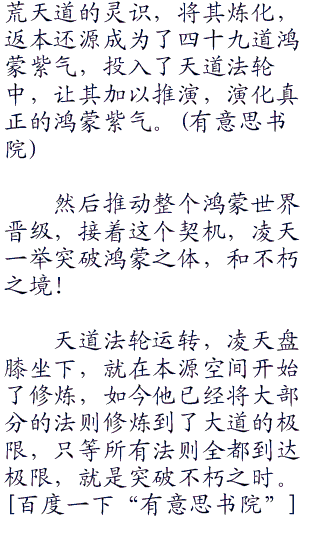 荒天道的灵识，将其炼化，
返本还源成为了四十九道鸿
蒙紫气，投入了天道法轮
中，让其加以推演，演化真
正的鸿蒙紫气。(有意思书
院)
然后推动整个鸿蒙世界
晋级，接着这个契机，凌天
一举突破鸿蒙之体，和不朽
之境！
天道法轮运转，凌天盘
膝坐下，就在本源空间开始
了修炼，如今他已经将大部
分的法则修炼到了大道的极
限，只等所有法则全都到达
极限，就是突破不朽之时。
[百度一下“有意思书院”]